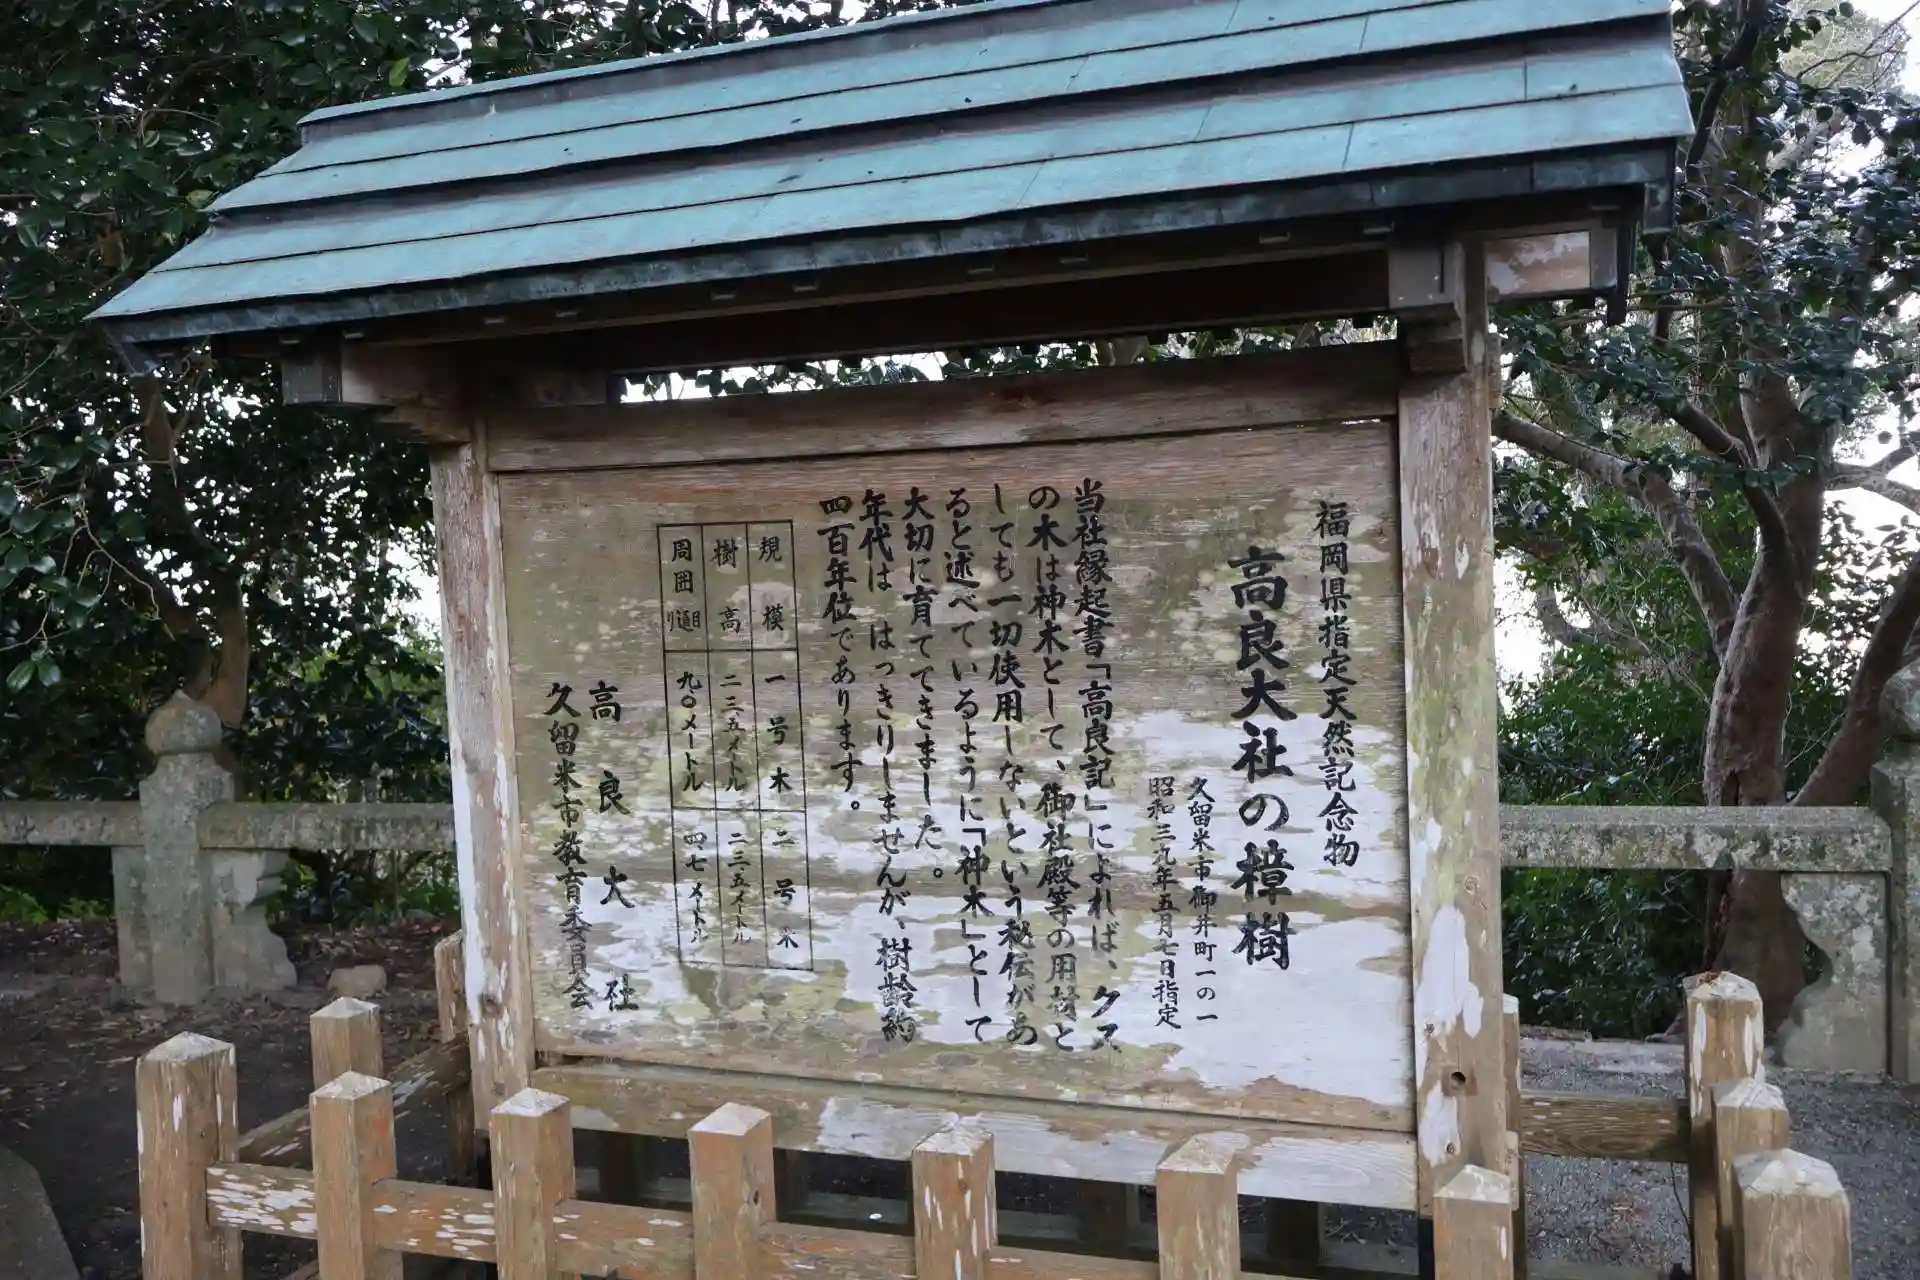 福岡県指定天然記念物
高良大社の樟樹
久留米市御井町一の一
昭和三九年五月七日指定
当社縁起書「高良記」によれば、クス
の木は神木として、御社殿等の用材と
しても一切使用しないという秘伝があ
ると述べているように「神木」として
大切に育ててきました。
年代は はっきりしませんが、樹齢約
四百年位であります。
規模 一号木 二号木
樹高 二三五メートル 二三五メートル
周囲目通り 九〇メートル 四七メートル
高良大社
久留米市教育委員会